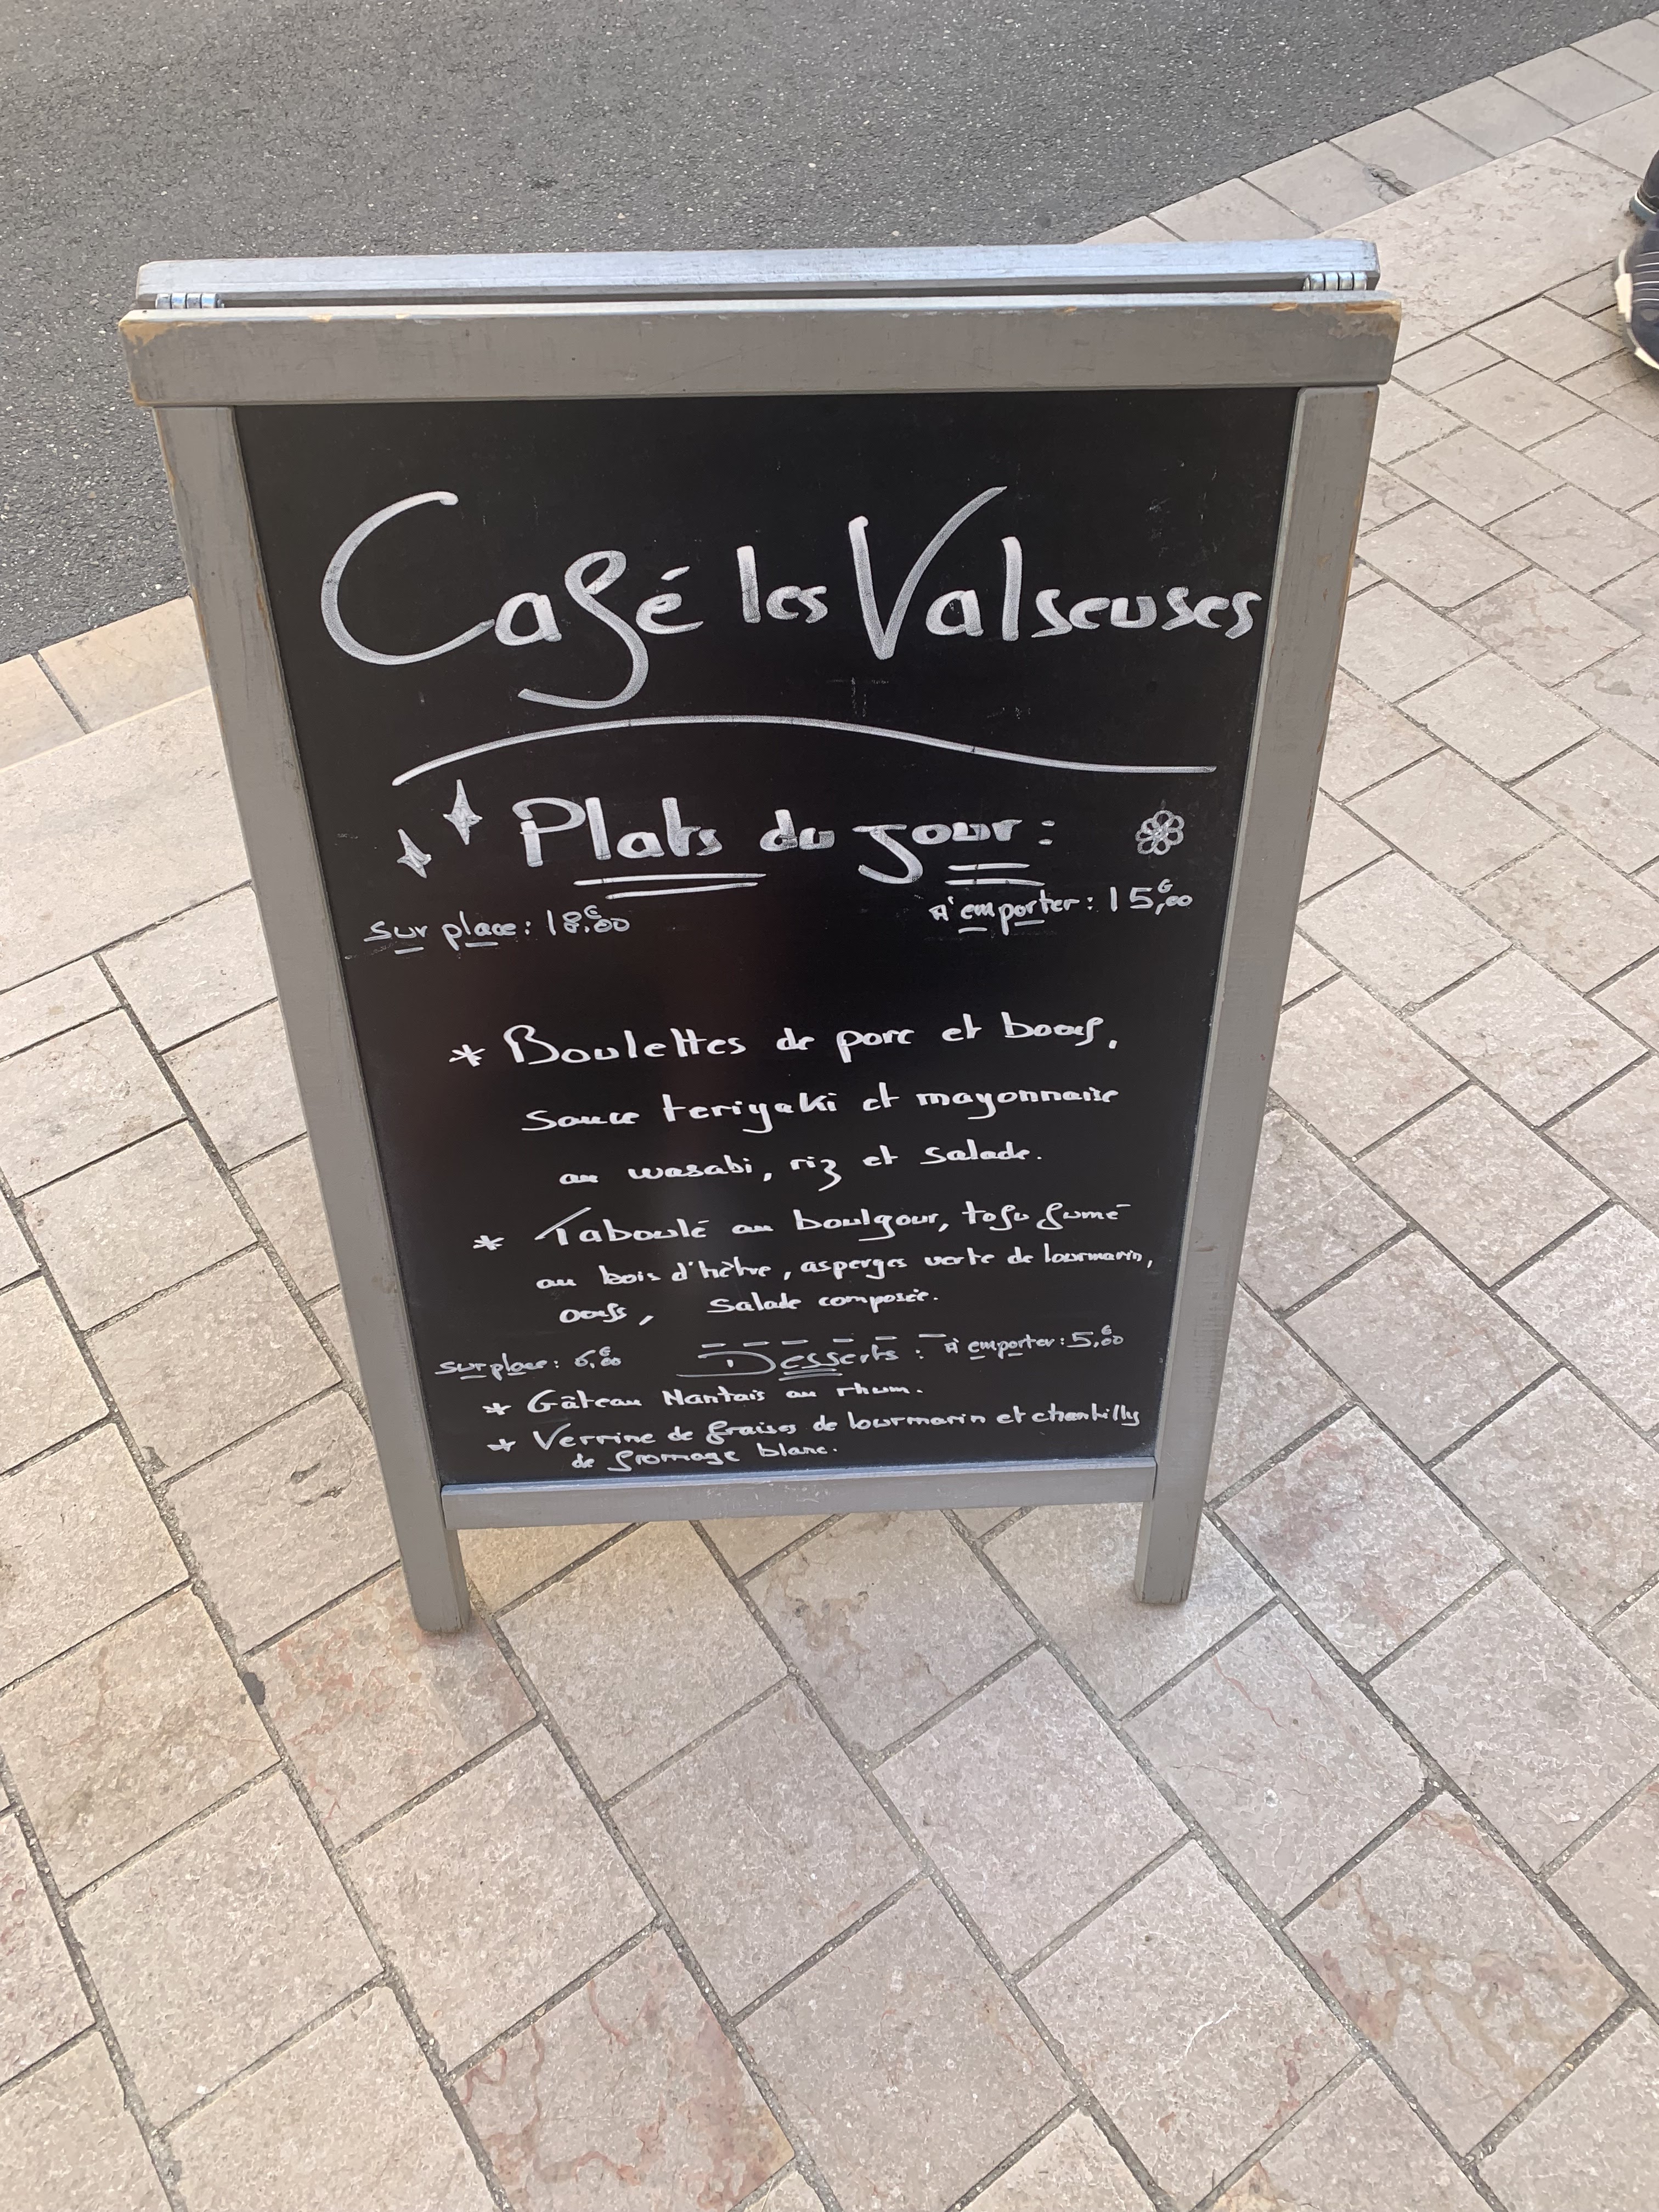 Café les Valseuses
Plats du jour :
sur place : 18,€00
A emporter : 15,€00
* Boulettes de porc et boeuf,
sauce teriyaki et mayonnaise
au wasabi, riz et salade.
* Taboulé au boulgour, tofu fumé
au bois d'hêtre, asperges verte de lourmarin,
oeufs, salade composée.
sur place : 6,€00 Desserts : A emporter : 5,€00
* Gâteau Nantais au rhum.
* Verrine de fraises de lourmarin et chantilly
de fromage blanc.